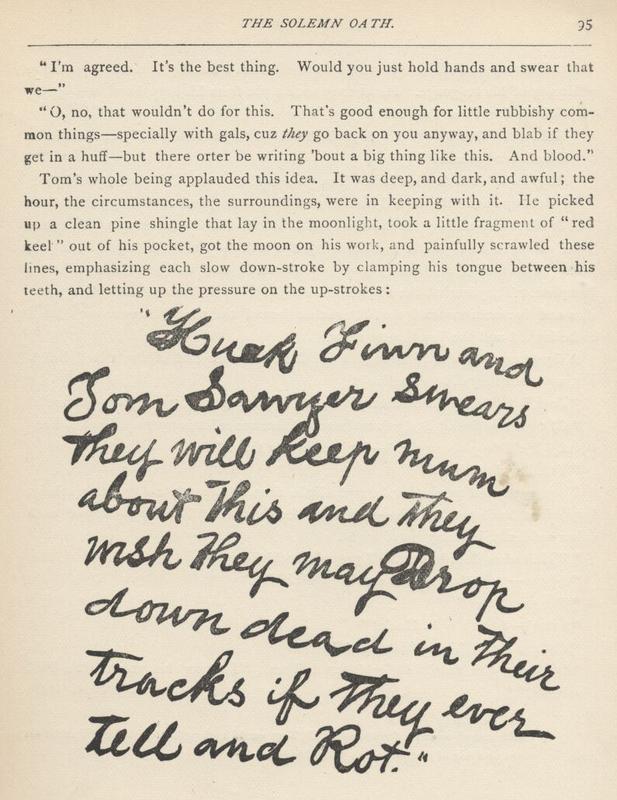 THE SOLEMN OATH. 95
"I'm agreed. It's the best thing. Would you just hold hands and swear that
we—"
"O, no, that wouldn't do for this. That's good enough for little rubbishy com-
mon things—specially with gals, cuz they go back on you anyway, and blab if they
get in a huff—but there orter be writing 'bout a big thing like this. And blood."
Tom's whole being applauded this idea. It was deep, and dark, and awful; the
hour, the circumstances, the surroundings, were in keeping with it. He picked
up a clean pine shingle that lay in the moonlight, took a little fragment of "red
keel" out of his pocket, got the moon on his work, and painfully scrawled these
lines, emphasizing each slow down-stroke by clamping his tongue between his
teeth, and letting up the pressure on the up-strokes:
"Huck Finn and
Tom Sawyer swears
they will keep mum
about This and They
wish They may Drop
down dead in Their
tracks if They ever
tell and Rot."